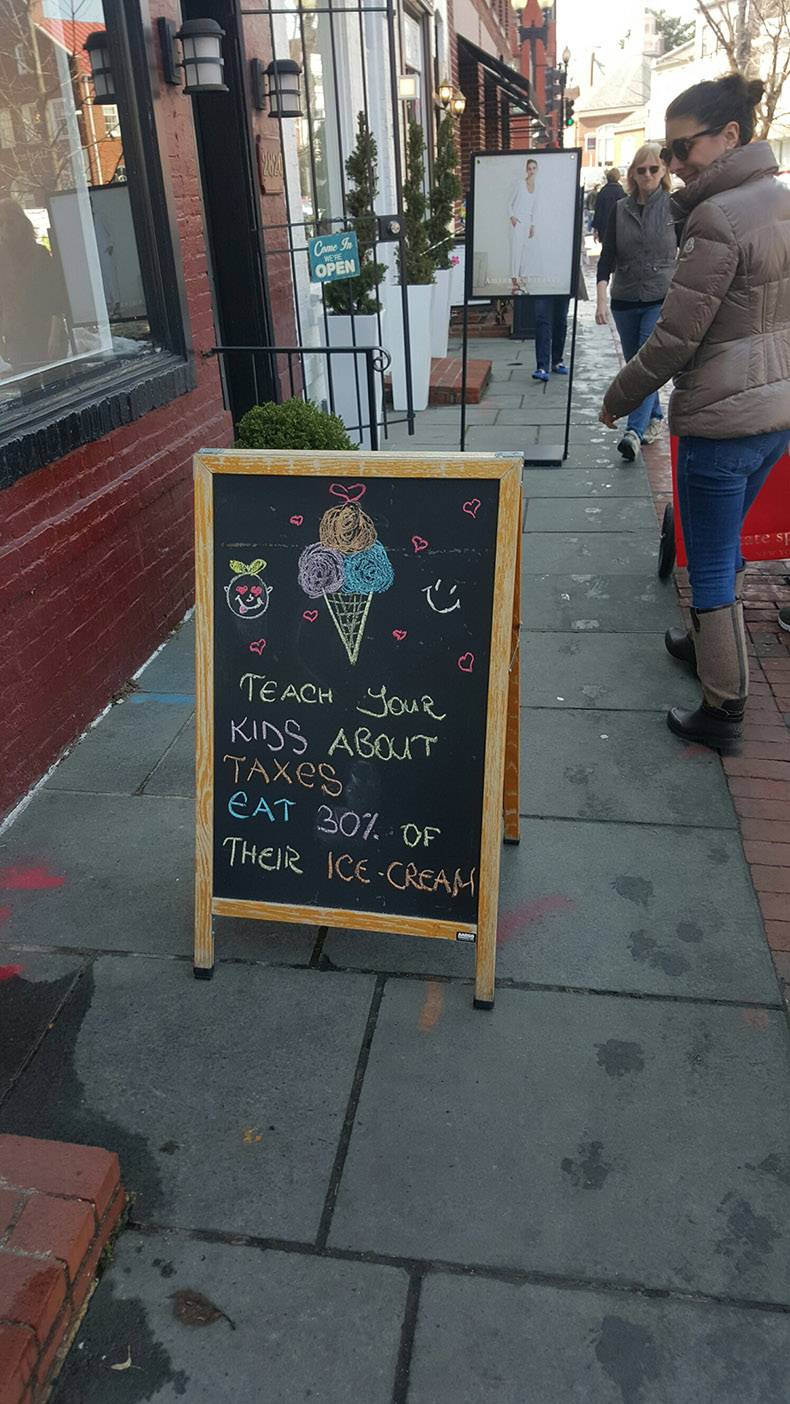 Come In
WE'RE
OPEN
TEACH YOUR
KIDS ABOUT
TAXES
EAT 30% OF
THEIR ICE-CREAM